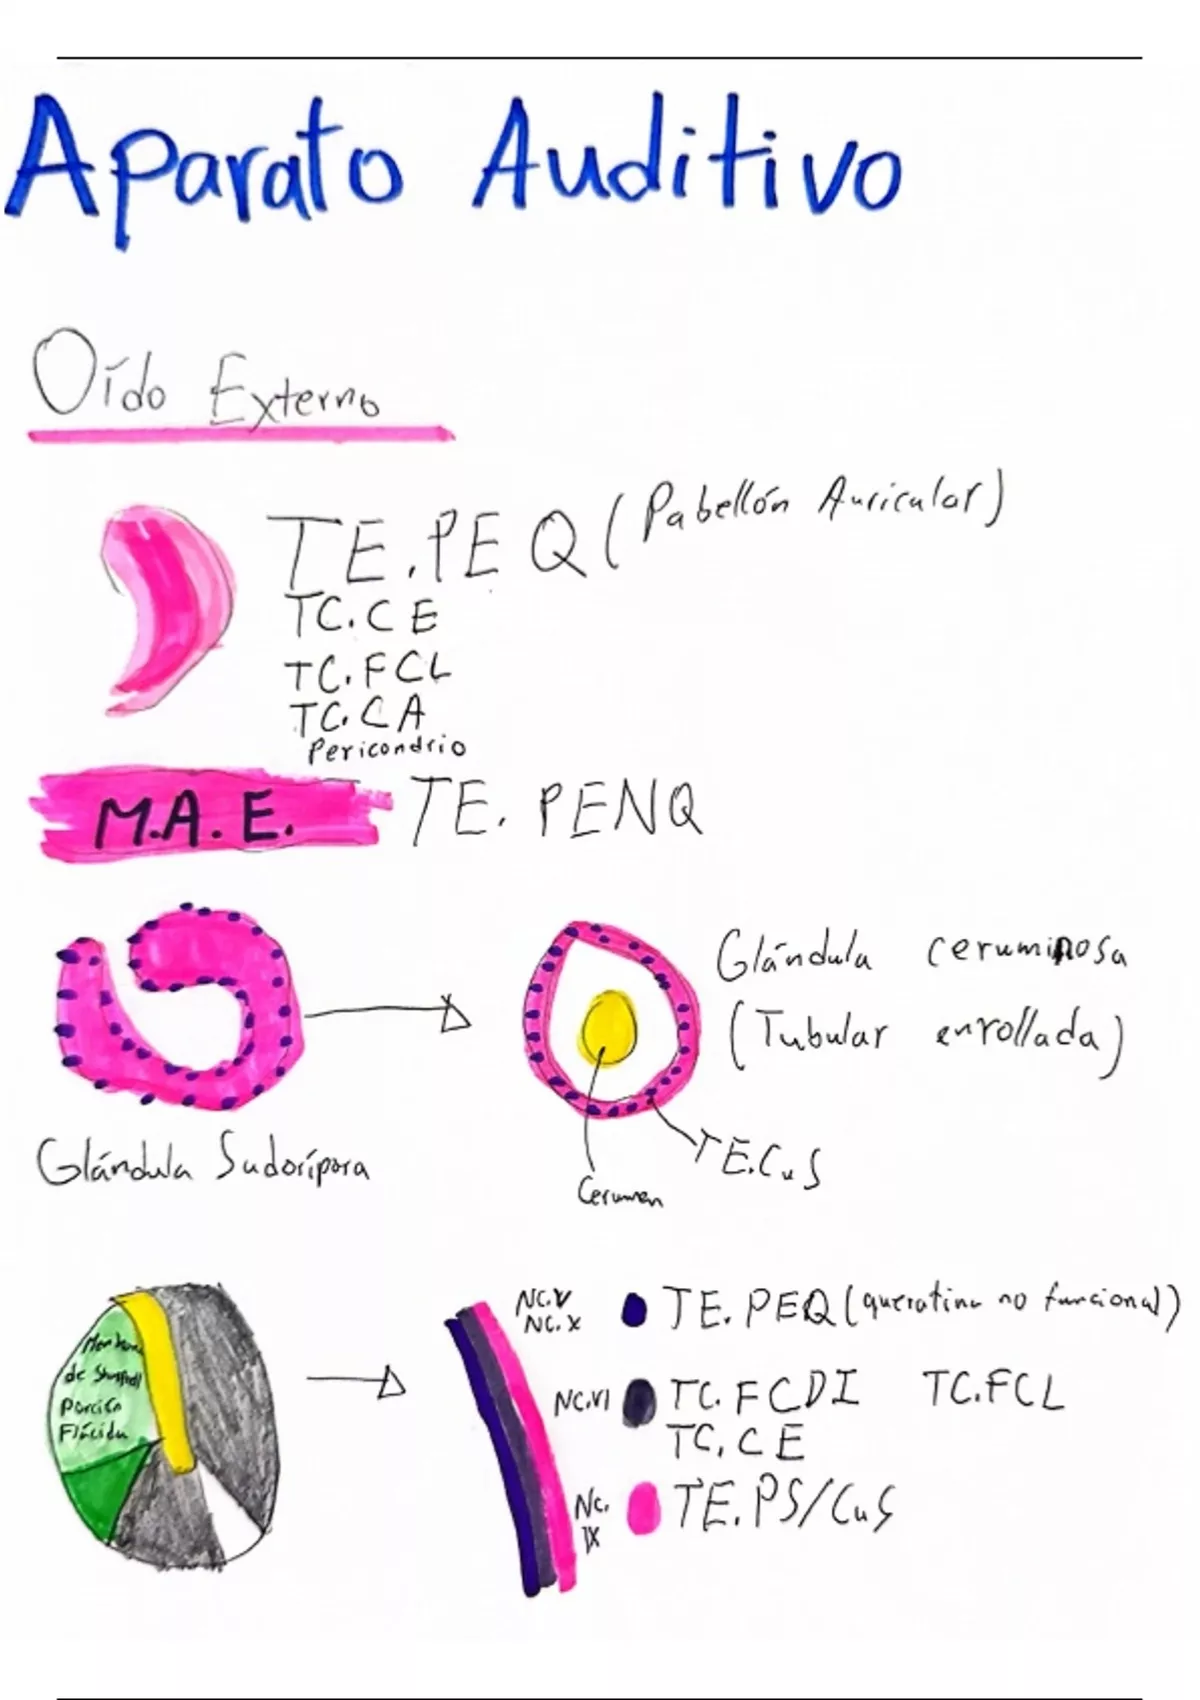 Aparato Auditivo
Oído Externo
TE.PEQ (Pabellón Auricular)
TC.CE
TC.FCL
TC.CA
Pericondrio
M.A.E. TE. PENQ
Glándula ceruminosa
(Tubular enrollada)
TE.CuS
Glándula Sudorípora
Cerumen
NC.V
NC.X
TE. PEQ (queratina no funcional)
Membrana
de Shrapnell
Porción
Flácida
NC.VI TC. FCDI TC.FCL
TC.CE
NC.
IX
TE.PS/CuS